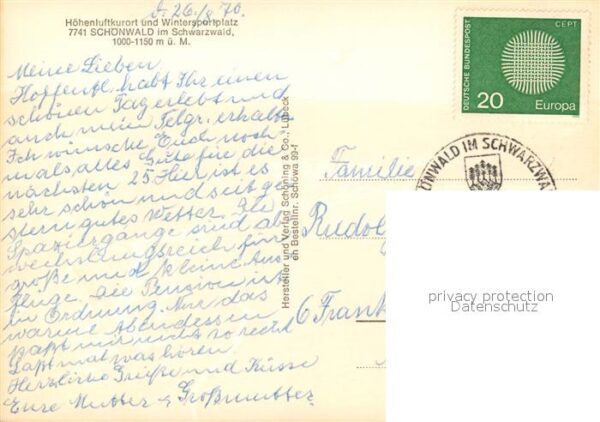 d. 26./8. 70.
Höhenluftkurort und Wintersportplatz
7741 SCHÖNWALD im Schwarzwald,
1000-1150 m ü. M.
Meine Lieben
Hoffentl. habt Ihr einen
schönen Tag erlebt und
auch mein Telgr. erhalten
Ich wünsche Euch noch-
mals alles Gute für die
nächsten 25. Hier ist es
sehr schön und seit ge-
stern gutes Wetter. Die
Spaziergänge sind ab-
wechslungsreich für
große und kleine Aus-
flüge. Die Pension ist
in Ordnung. Nur das
warme Abendessen
paßt mir nicht so recht
Laßt mal was hören.
Herzliche Grüße und Küsse
Eure Mutter & Großmutter
Hersteller und Verlag Schöning & Co., Lübeck
Bestellnr. Schöwa 99-f
DEUTSCHE BUNDESPOST
CEPT
20 Europa
SCHÖNWALD IM SCHWARZWA
Familie
Rudol
6 Frank
privacy protection
Datenschutz